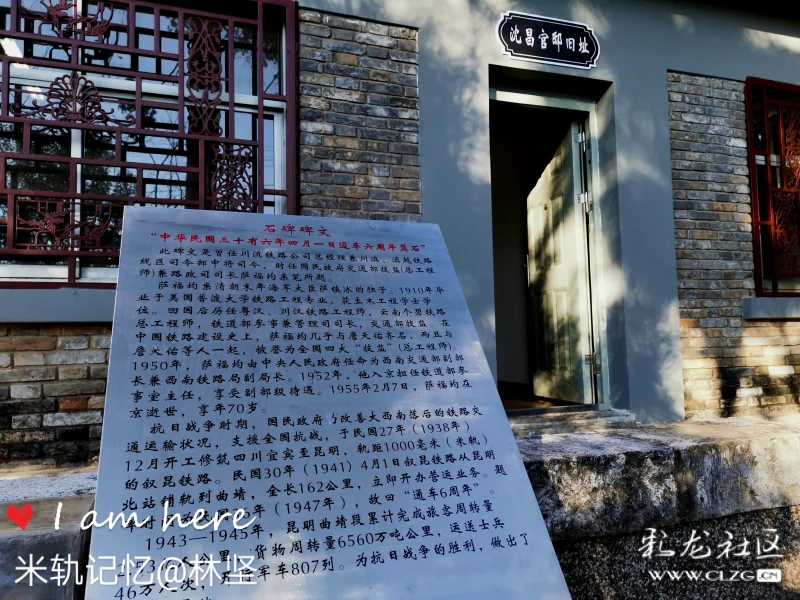 沈昌官邸旧址
石碑碑文
"中华民国三十有六年四月一日通车六周年奠石"
此碑文是曾任川滇铁路公司总经理兼川滇、滇越铁路
线区司令部中将司令，时任国民政府交通部技监(总工程
师)兼路政司司长萨福均亲笔所题。
萨福均系清朝末年海军大臣萨镇冰的独子。1910年毕
业于美国普渡大学铁路工程专业，获土木工程学士学
位。回国后历任粤汉、川汉铁路工程师，云南个碧铁路
总工程师，铁道部参事兼管理司司长，交通部技监。在
中国铁路建设史上，萨福均几乎与詹天佑齐名，而且与
詹天佑等人一起，被誉为全国四大"技监"(总工程师)
1950年，萨福均由中央人民政府任命为西南交通部副部
长兼西南铁路局副局长。1952年，他入京担任铁道部参
事室主任，享受副部级待遇。1955年2月7日，萨福均在
京逝世，享年70岁。
抗日战争时期，国民政府为改善大西南落后的铁路交
通运输状况，支援全国抗战，于民国27年（1938年）
12月开工修筑四川宜宾至昆明，轨距1000毫米（米轨）
的叙昆铁路。民国30年（1941）4月1日叙昆铁路从昆明
北站铺轨到曲靖，全长162公里，立即开办营运业务。题
年（1947年），故曰"通车6周年"。
1943—1945年，昆明曲靖段累计完成旅客周转量
公里，货物周转量6560万吨公里，运送士兵
46万人次，开行军车807列。为抗日战争的胜利，做出了
I am here
米轨记忆@林坚
彩龙社区
WWW.CLZG.CN